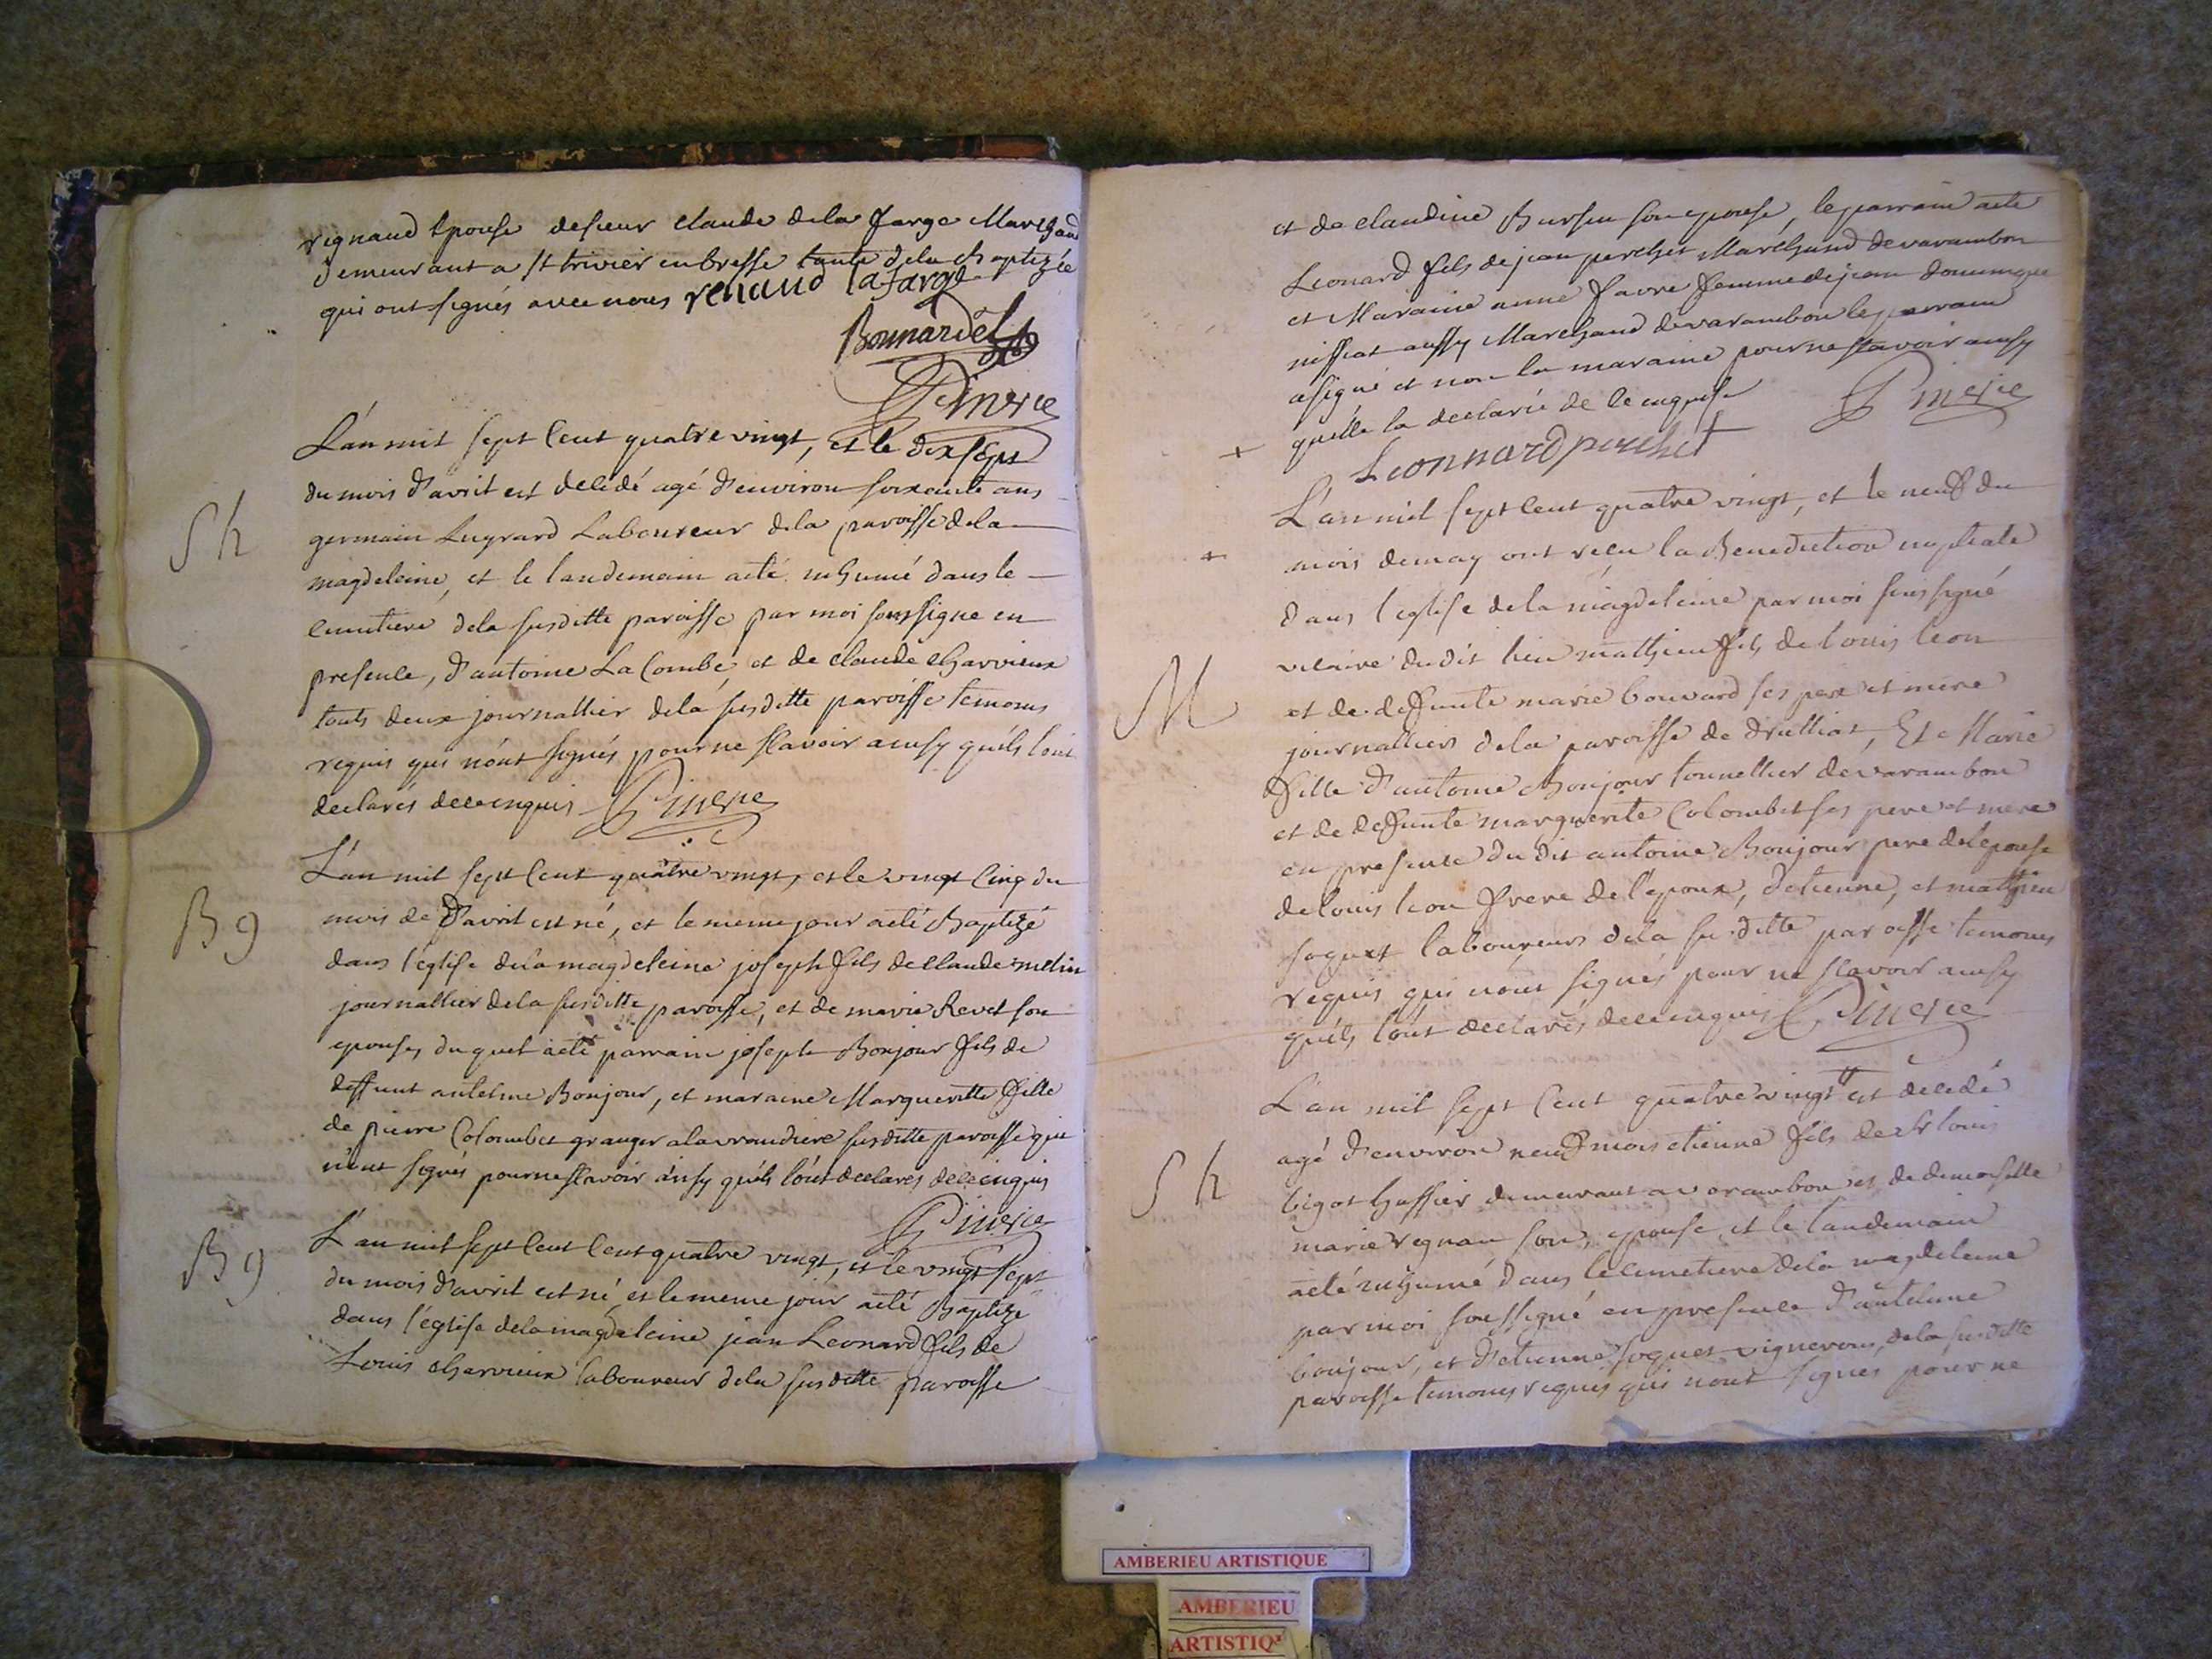 rignaud Epouse desieur claude dela farge Marchand
demeurant a st trivier enbresse tante dela Baptizée
qui ont signés avec nous renaud lafarge
Bonnardel
Pinerie
L'an mil sept Cent quatre vingt, et le dix sept
Sh
du mois d'avril est décédé agé d'environ soixante ans
germain Lugrard Laboureur dela paroisse dela
magdeleine, et le landemain aété inhumé dans le
cimitiere dela susditte paroisse par moi soussigne en
presence, d'antoine La Combe, et de claude charvieux
touts deux journallier dela susditte paroisse temoins
requis qui n'ont signés pour ne scavoir ainsy quils l'ont
declarés deceenquis Pinerie
L'an mil sept Cent quatre vingt, et le vingt Cinq du
B 9
mois de d'avril est né, et le meme jour aété Baptizé
dans l'eglise dela magdeleine joseph fils de claude melin
journallier dela susditte paroisse, et de marie Revet son
epouse, du quel aété parrain joseph Bonjour fils de
deffunt antelme Bonjour, et maraine Margueritte fille
de pierre Colombet granger ala susditte paroisse qui
n'ont signés pour ne scavoir ainsy quils l'ont declarés deceenquis
Pinerie
B 9
L'an mil sept Cent Cent quatre vingt, et le vingt sept
du mois d'avril est né et le meme jour aété Baptizé
dans l'église dela magdeleine jean Leonard fils de
Louis charvieux laboureur dela susditte paroisse
et de claudine son epouse, le parrain aété
Leonard fils de jean perchet Marchand de varambon
et Maraine anne favre femme de jean dominique
niffiat aussy Marchand de varambon le parrain
asigné et non la maraine pour ne scavoir ainsy
quelle la declarié de ce enquise Pinerie
+ Leonnard perchet
L'an mil sept Cent quatre vingt, et le neuf du
+ mois demay ont reçu la Benediction nuptiale
dans l'eglise dela magdeleine par moi soussigné
vicaire dudit lieu mathieu fils de louis leon
M
et de deffunte marie bouvard ses pere et mere
journalliers dela paroisse de druilliat, Et Marie
fille d'antoine Bonjour tonnellier de varambon
et de deffunte marguerite Colombet ses pere et mere
en presence du dit antoine Bonjour pere del epouse
de louis leon frere de l'epoux, d'etienne, et mathieu
soquet laboureurs dela susditte paroisse temoins
requis qui nont signés pour ne scavoir ainsy
quils l'ont declarés deceenquis Pinerie
L'an mil sept Cent quatre vingt est décédé
Sh
agé d'environ neuf mois etienne fils de sr louis
bigot huissier demeurant a varambon et de demoiselle
marie regnau son epouse, et le landemain
aété inhumé dans le cimetiere dela magdeleine
par moi soussigné en presence d'antelme
bonjour, et d'etienne soquet vignerons, dela susditte
paroisse temoins requis qui nont signes pour ne
AMBERIEU ARTISTIQUE
AMBERIEU
ARTISTIQ